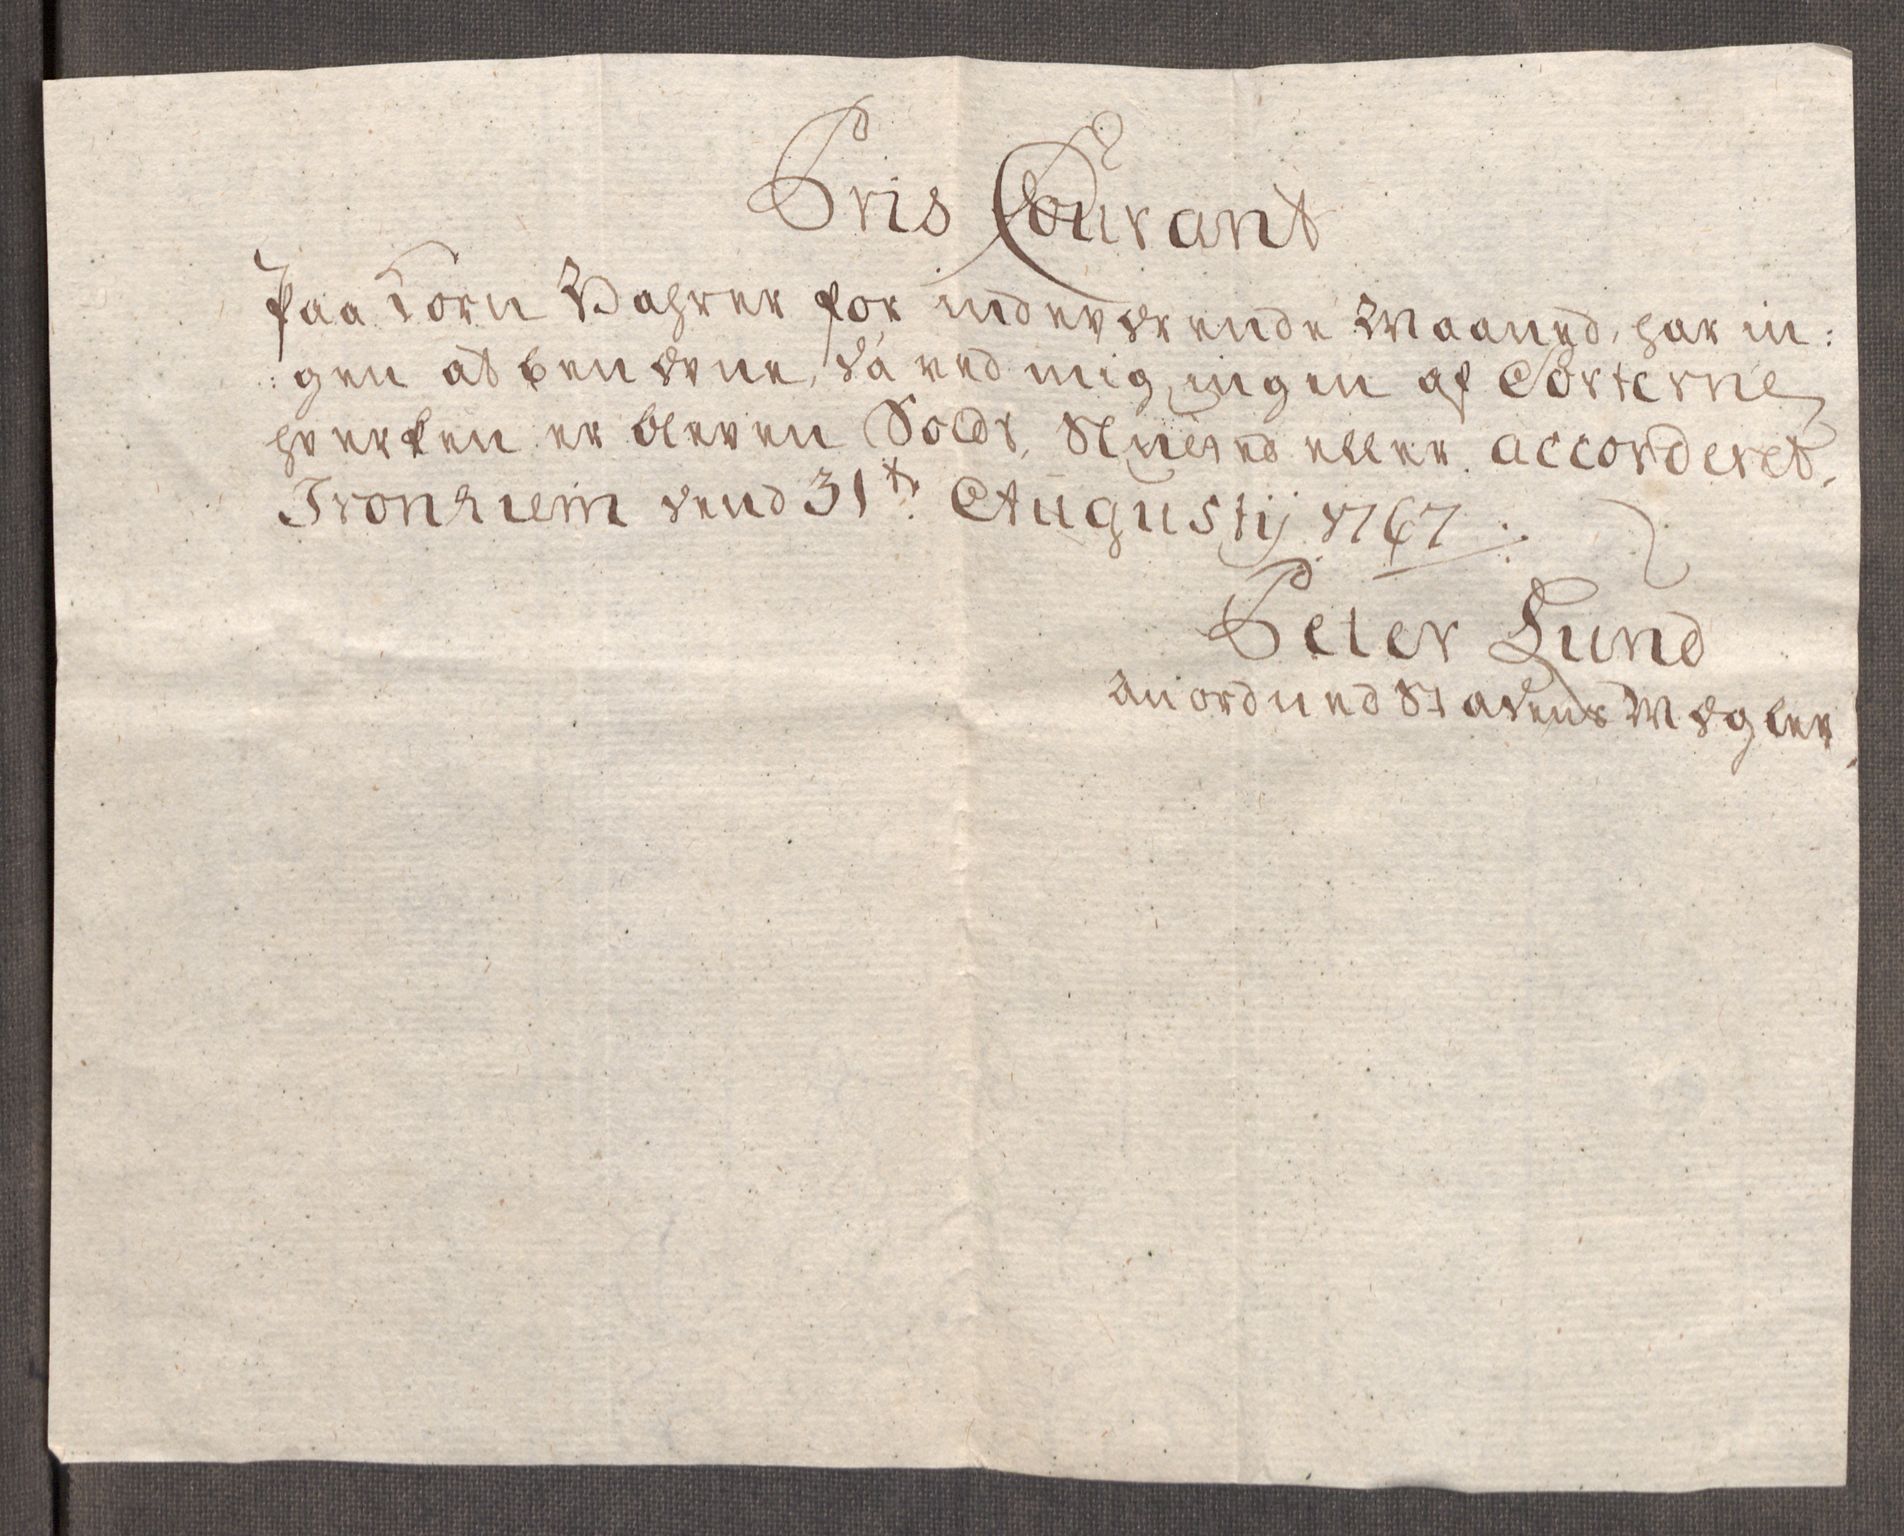 Pris Courant
Paa Korn Vahrer for indeværende Maaned, har in:
:gen at benævne, da ved mig ingen af Sorterne
hverken er bleven Soldt, Sluttet eller accorderet,
Tronhiem dend 31te Augustij 1767.
Peter Lund
anordned Stadens Mægler